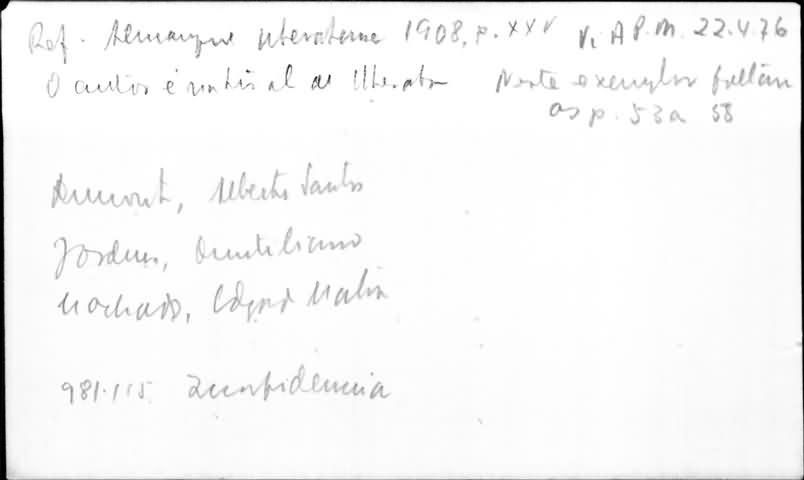 Ref. Almanaque Uberabense 1908, p. XXV V. A P. M. 22.4.76
O autor é natural de Uberaba Neste exemplar faltam
as p. 53 a 58
Dumont, Alberto Santos
Jordão, Quintiliano
Machado, Edgard
981.115 Inconfidencia